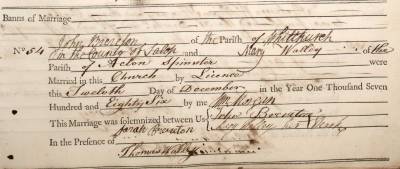 Banns of Marriage
No. 54 John Brereton of the Parish of Whitchurch
in the County of Salop and Mary Walley of this
Parish of Acton Spinster were
Married in this Church by Licence
this Twelfth Day of December in the Year One Thousand Seven
Hundred and Eighty Six by Me
This Marriage was solemnized between Us John Brereton
Mary Walley her Mark
In the Presence of Sarah Brereton
Thomas Walley